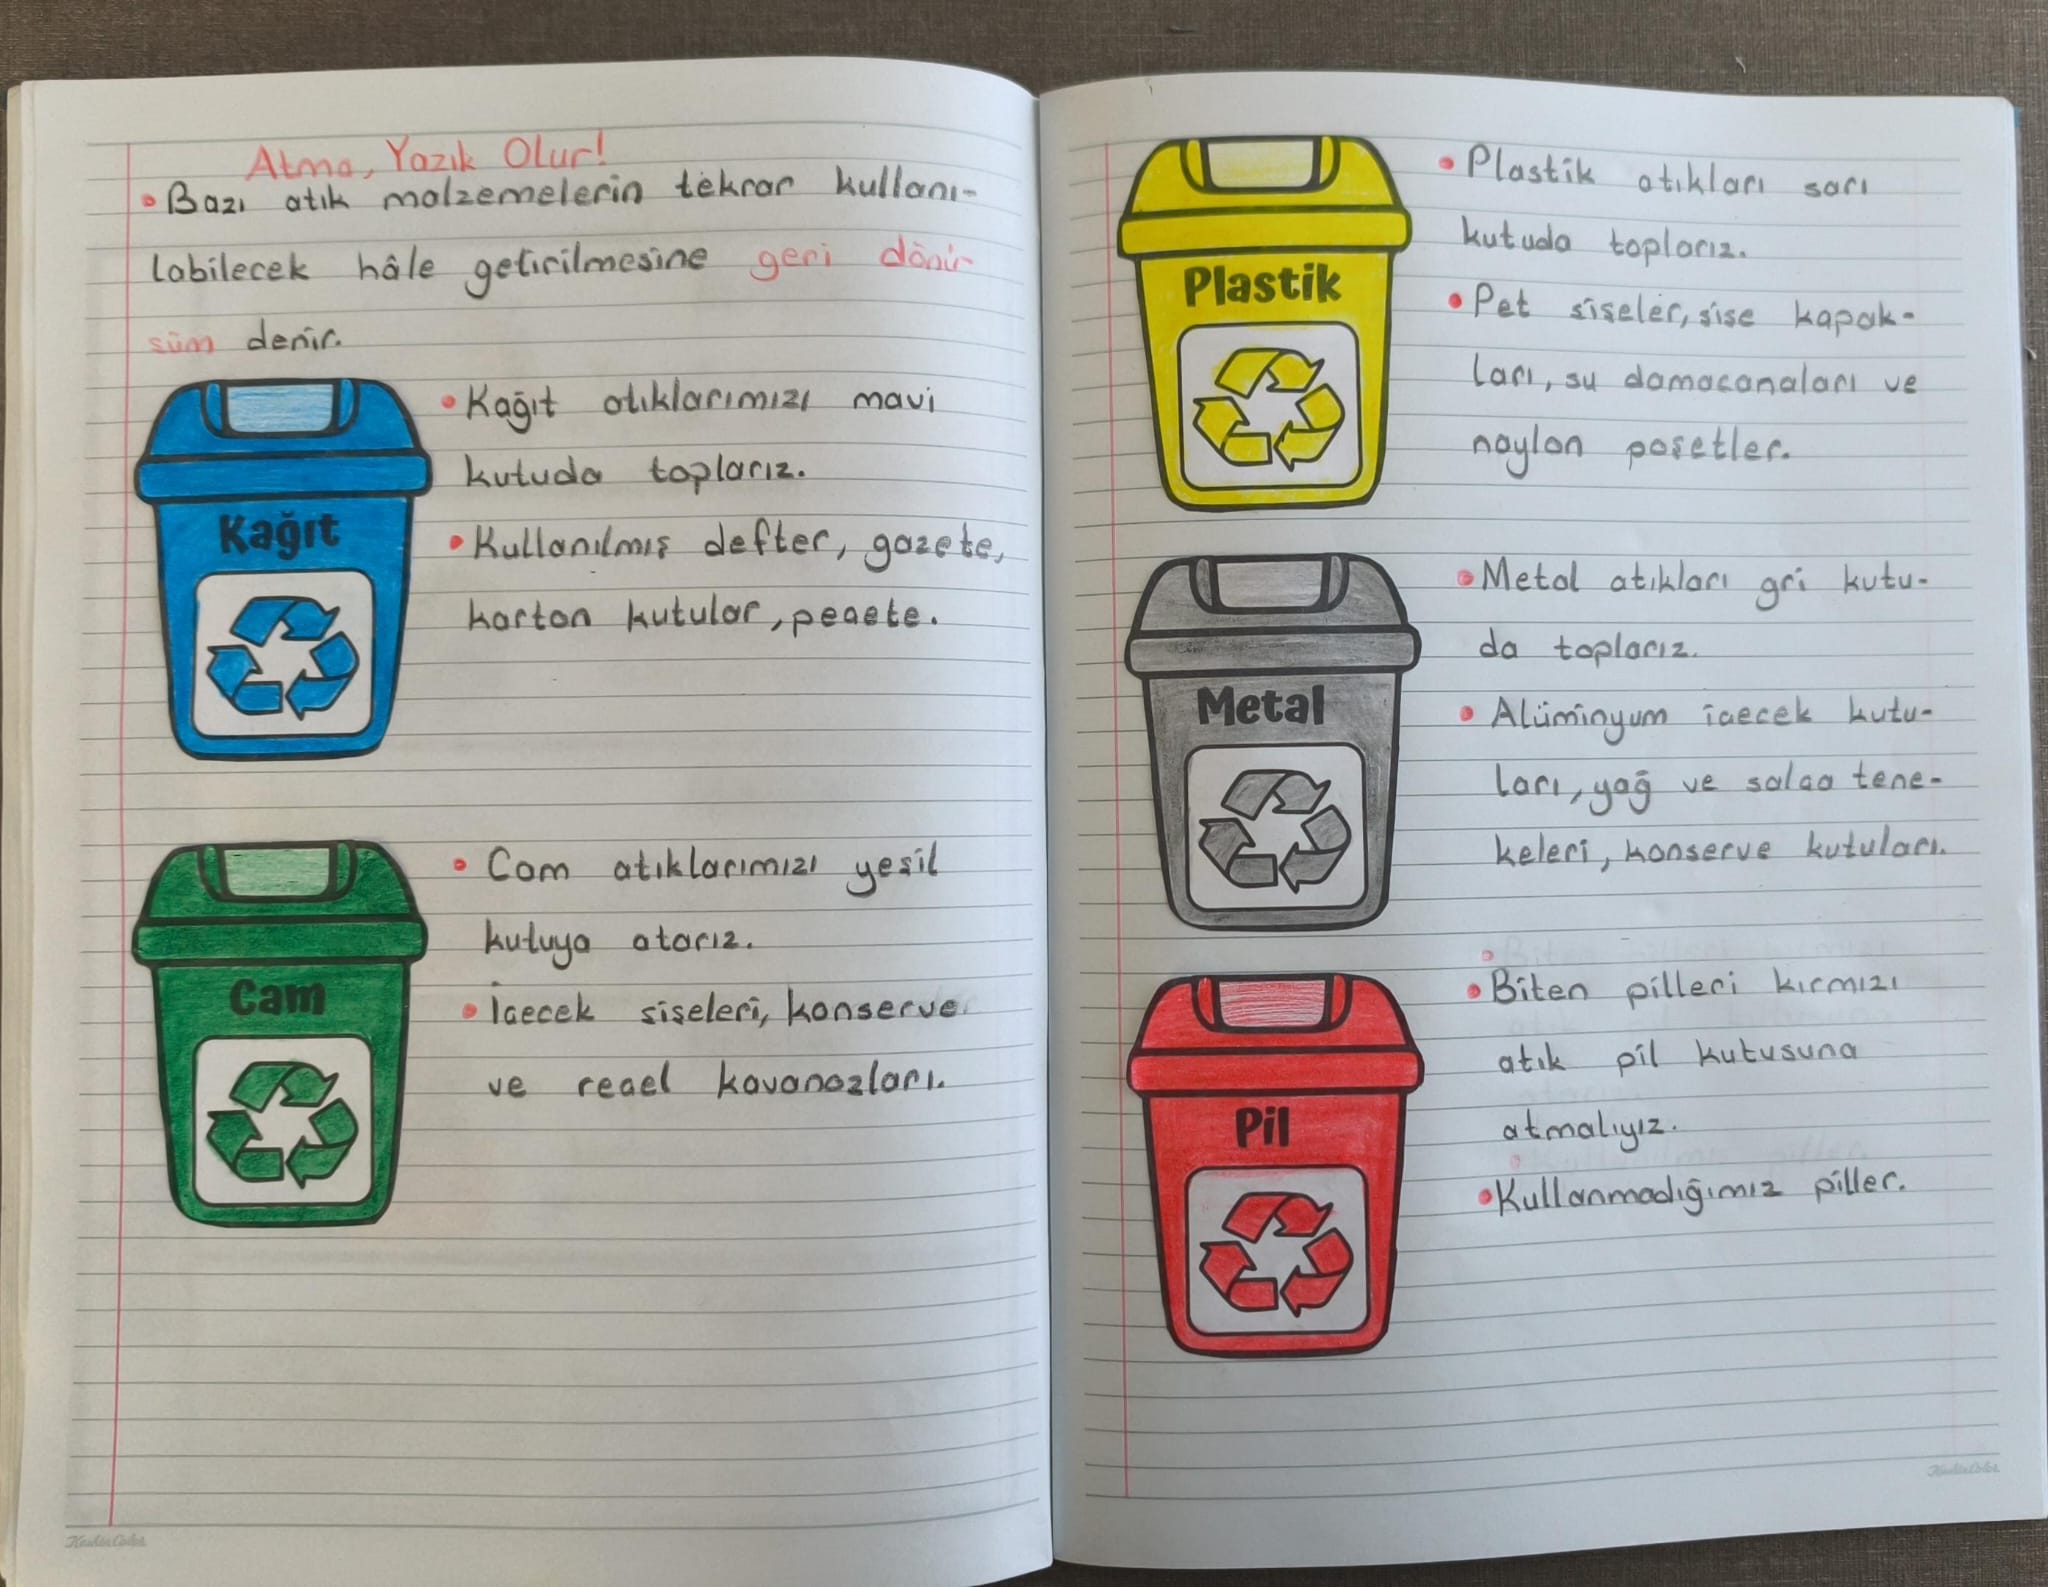 Atma, Yazık Olur!
• Bazı atık malzemelerin tekrar kullanı-
labilecek hâle getirilmesine geri dönü-
süm denir.
Kağıt
• Kağıt atıklarımızı mavi
kutuda toplarız.
• Kullanılmış defter, gazete,
karton kutular, peçete.
Cam
• Cam atıklarımızı yeşil
kutuya atarız.
• İçecek şişeleri, konserve
ve reçel kavanozları.
Plastik
• Plastik atıkları sarı
kutuda toplarız.
• Pet şişeler, şişe kapak-
ları, su damacanaları ve
naylon poşetler.
Metal
• Metal atıkları gri kutu-
da toplarız.
• Alüminyum içecek kutu-
ları, yağ ve salça tene-
keleri, konserve kutuları.
Pil
• Biten pilleri kırmızı
atık pil kutusuna
atmalıyız.
• Kullanmadığımız piller.